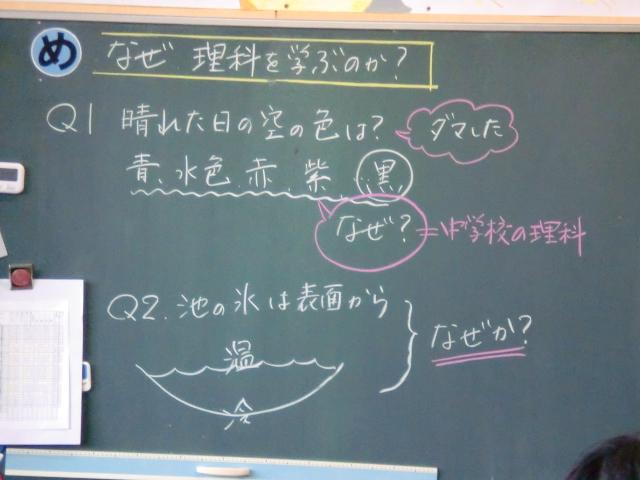 め なぜ 理科を学ぶのか?
Q1 晴れた日の空の色は? ダマした
青、水色、赤、紫、黒、
なぜ? = 中学校の理科
Q2. 池の氷は表面から
なぜか?
温
冷